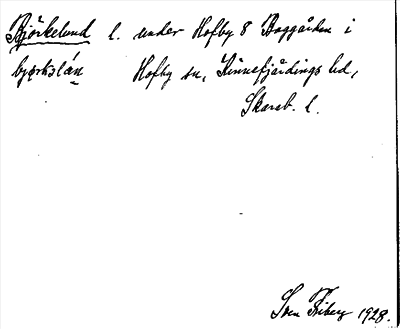 Björkelund l. under Hofby 8 Boggården i
bjørkəlán Hofby sn, Kinnefjärdings hd,
Skarab. l.
Sven Friberg 1928.